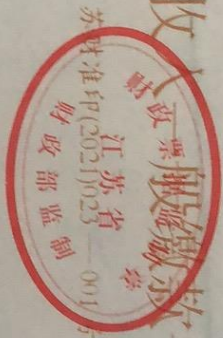 收人一般缴款
财政票据监制章
江苏省
苏财准印(2021)023-001号
财政部监制